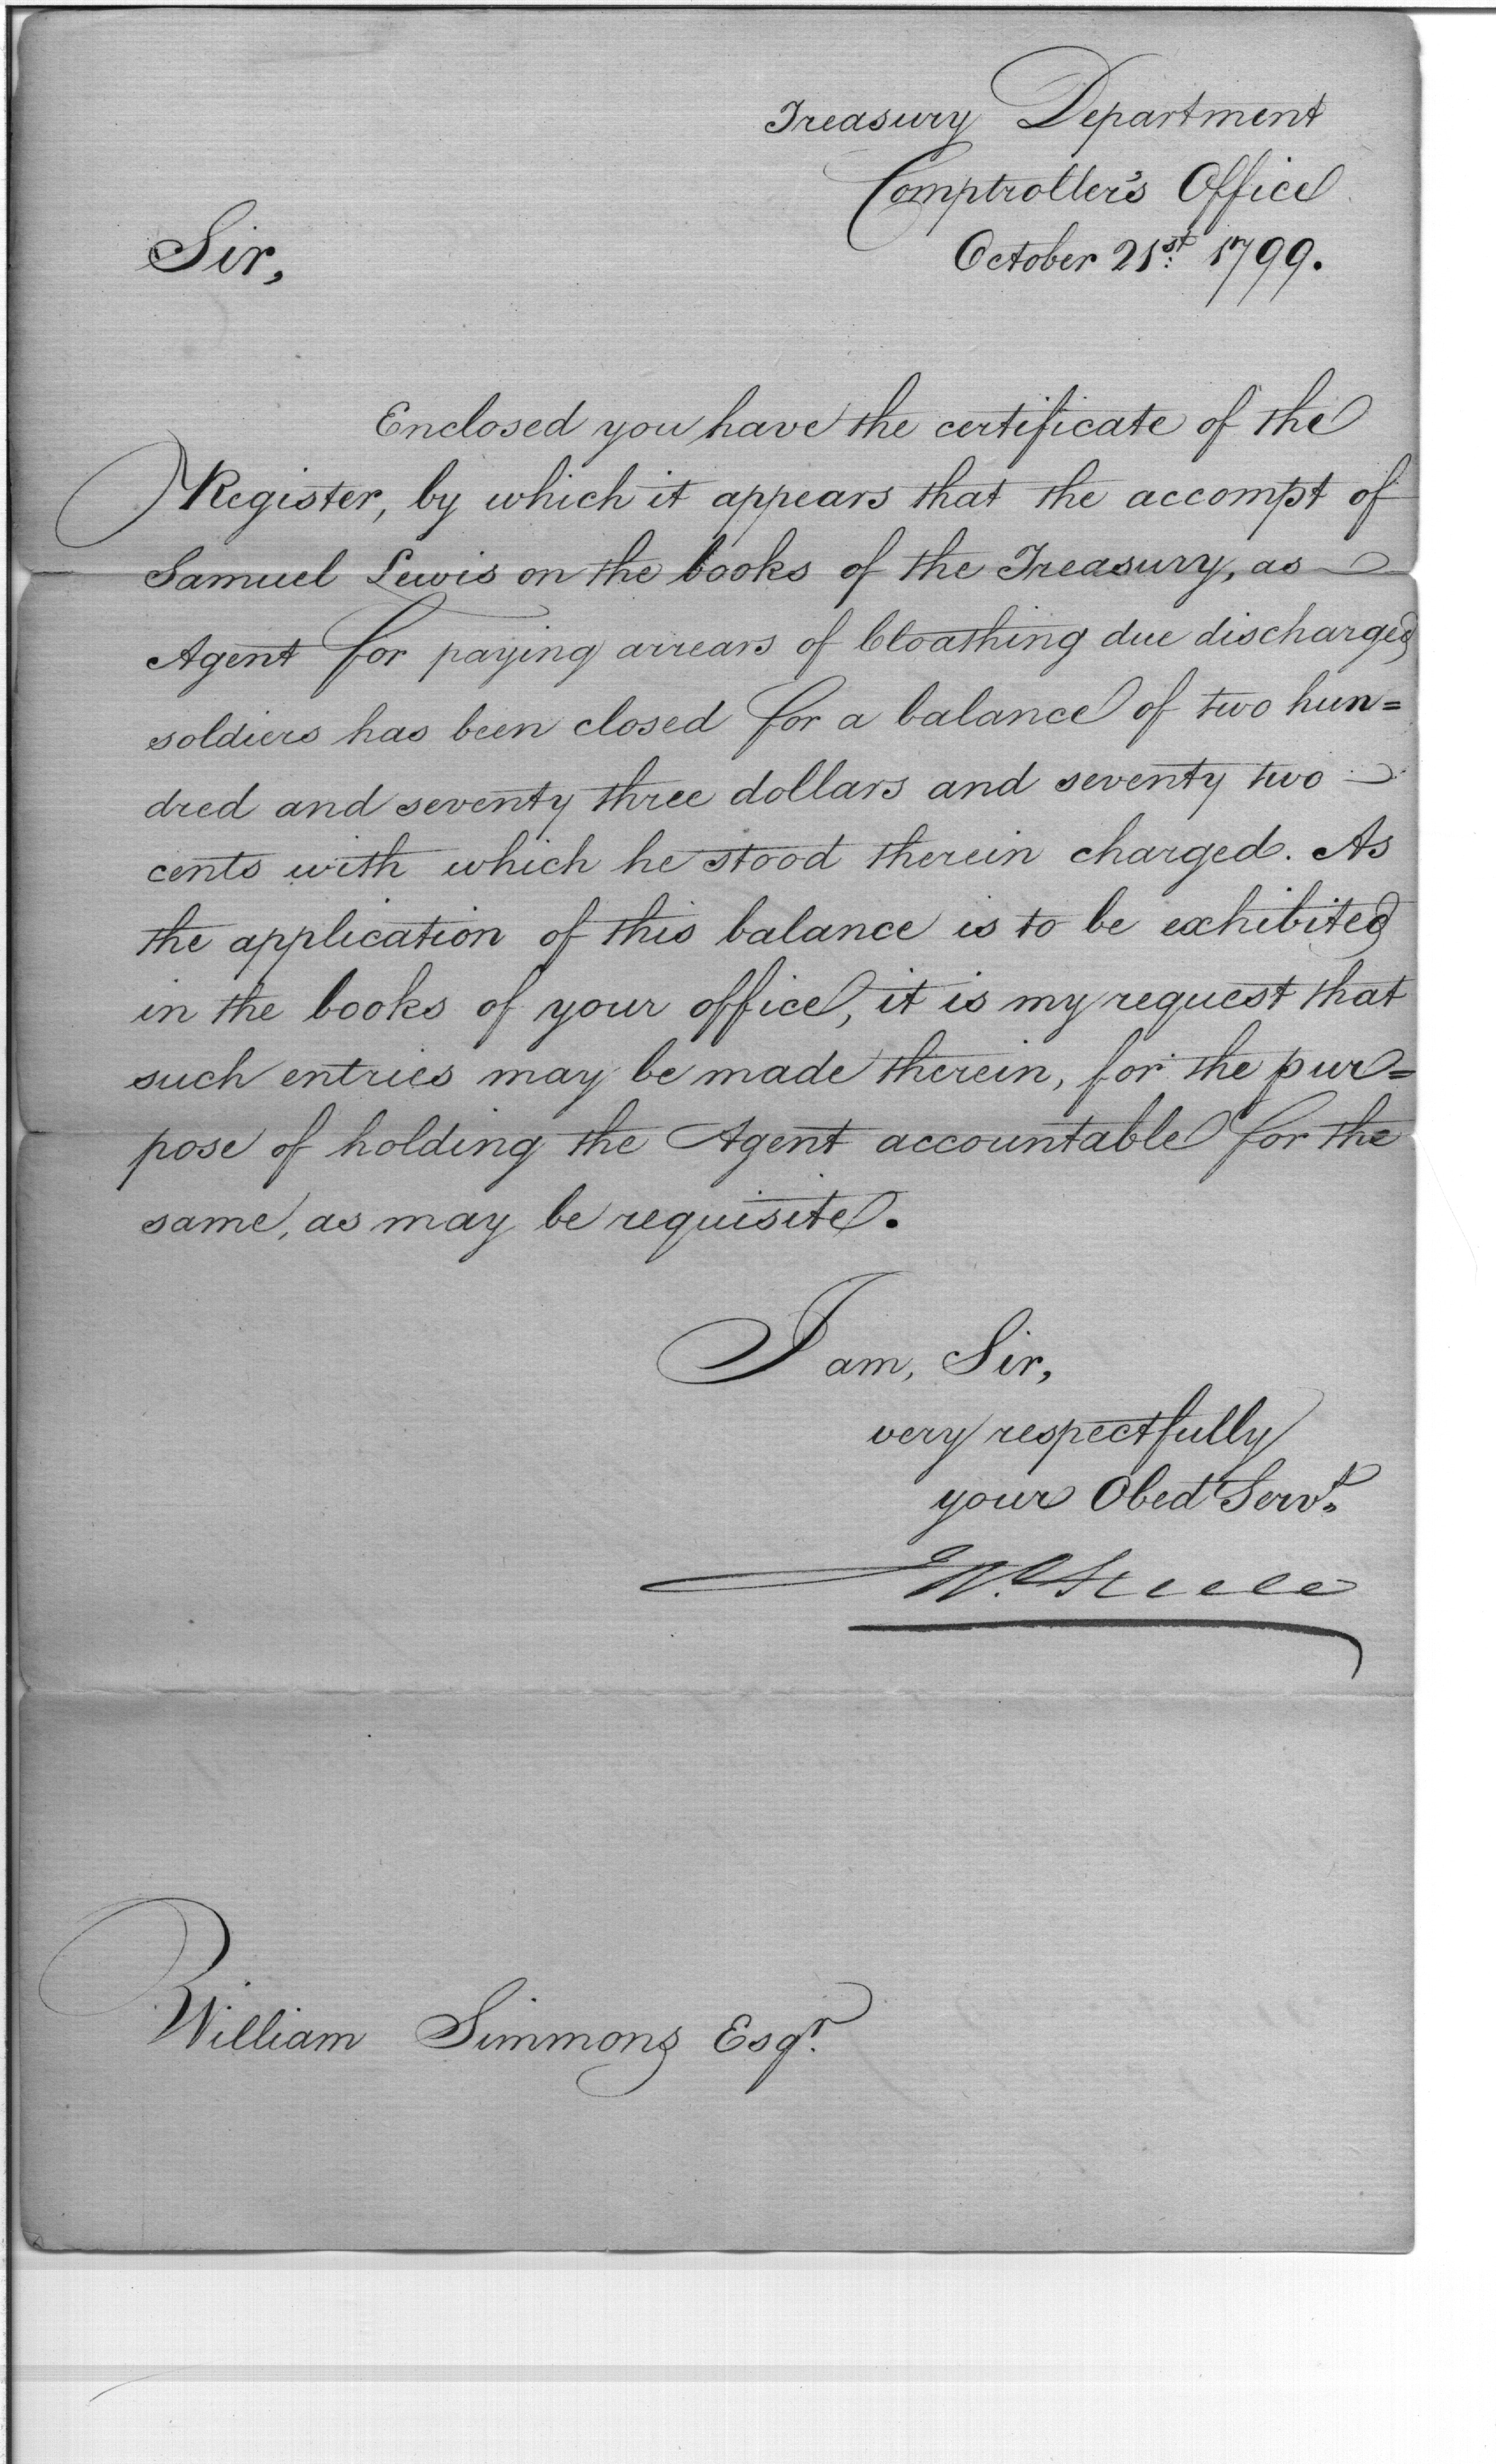 Treasury Department
Comptroller's Office
October 21st. 1799.
Sir,
Enclosed you have the certificate of the
Register, by which it appears that the accompt of
Samuel Lewis on the books of the Treasury, as
Agent for paying arrears of Cloathing due discharged
soldiers has been closed for a balance of two hun=
dred and seventy three dollars and seventy two
cents with which he stood therein charged. As
the application of this balance is to be exhibited
in the books of your office, it is my request that
such entries may be made therein, for the pur=
pose of holding the Agent accountable for the
same, as may be requisite.
I am, Sir,
very respectfully
your Obed Servt.
Jno. Steele
William Simmons Esqr.